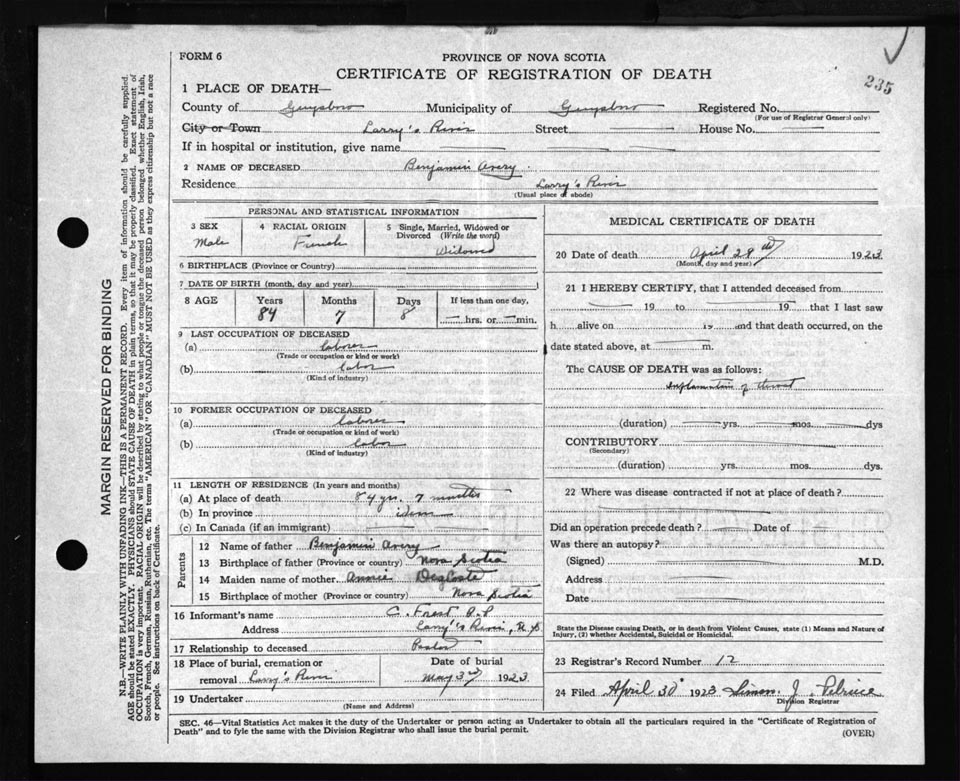 235
FORM 6
PROVINCE OF NOVA SCOTIA
CERTIFICATE OF REGISTRATION OF DEATH
1 PLACE OF DEATH—
County of Guysboro Municipality of Guysboro Registered No.
(For use of Registrar General only)
City or Town Larry's River Street House No.
If in hospital or institution, give name
2 NAME OF DECEASED Benjamin Avery
Residence Larry's River
(Usual place of abode)
PERSONAL AND STATISTICAL INFORMATION
3 SEX 4 RACIAL ORIGIN 5 Single, Married, Widowed or
Divorced (Write the word)
Male French Widowed
6 BIRTHPLACE (Province or Country)
7 DATE OF BIRTH (month, day and year)
8 AGE Years Months Days If less than one day,
84 7 8 hrs. or min.
9 LAST OCCUPATION OF DECEASED
(a) laborer
(Trade or occupation or kind or work)
(b) labor
(Kind of industry)
10 FORMER OCCUPATION OF DECEASED
(a) laborer
(Trade or occupation or kind of work)
(b) labor
(Kind of industry)
11 LENGTH OF RESIDENCE (In years and months)
(a) At place of death 84 yrs. 7 months
(b) In province idem
(c) In Canada (if an immigrant)
Parents
12 Name of father Benjamin Avery
13 Birthplace of father (Province or country) Nova Scotia
14 Maiden name of mother Annie
15 Birthplace of mother (Province or country) Nova Scotia
16 Informant's name C. Forest P.P.
Address Larry's River, N.S.
17 Relationship to deceased Pastor
18 Place of burial, cremation or Date of burial
removal Larry's River May 3rd 1923.
19 Undertaker
(Name and Address)
MEDICAL CERTIFICATE OF DEATH
20 Date of death April 28th 1923
(Month, day and year)
21 I HEREBY CERTIFY, that I attended deceased from
19 to 19 that I last saw
h alive on 19 and that death occurred, on the
date stated above, at m.
The CAUSE OF DEATH was as follows:
Inflamation of throat
(duration) yrs. mos. dys
CONTRIBUTORY
(Secondary)
(duration) yrs. mos. dys.
22 Where was disease contracted if not at place of death?
Did an operation precede death? Date of
Was there an autopsy?
(Signed) M.D.
Address
Date
State the Disease causing Death, or in death from Violent Causes, state (1) Means and Nature of
Injury, (2) whether Accidental, Suicidal or Homicidal.
23 Registrar's Record Number 12
24 Filed April 30 1923 Simon J. Pelrine
Division Registrar
SEC. 46—Vital Statistics Act makes it the duty of the Undertaker or person acting as Undertaker to obtain all the particulars required in the "Certificate of Registration of
Death" and to fyle the same with the Division Registrar who shall issue the burial permit.
(OVER)
MARGIN RESERVED FOR BINDING
N.B.—WRITE PLAINLY WITH UNFADING INK—THIS IS A PERMANENT RECORD. Every item of information should be carefully supplied.
AGE should be stated EXACTLY. PHYSICIANS should STATE CAUSE OF DEATH in plain terms, so that it may be properly classified. Exact statement of
OCCUPATION is very important. RACIAL ORIGIN will be described by stating to what people or tongue the deceased person belonged whether English, Irish,
Scotch, French, German, Russian, Ruthenian, etc. The terms "AMERICAN" OR "CANADIAN" MUST NOT BE USED as they express citizenship but not a race
or people. See instructions on back of Certificate.